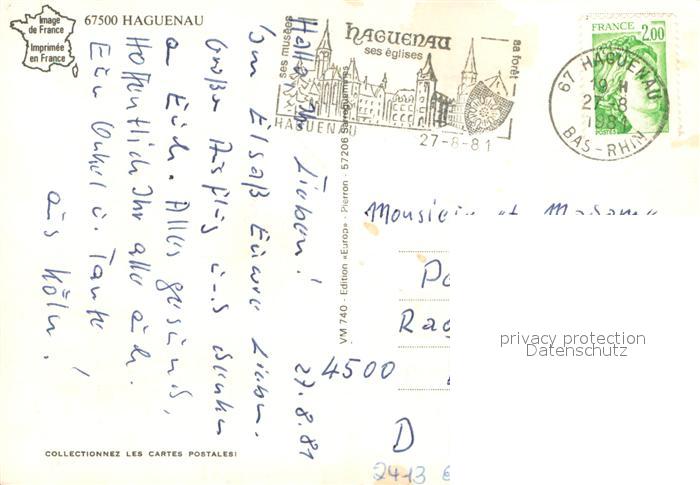 Image
de France
Imprimée
en France
67500 HAGUENAU
ses musées
HAGUENAU
ses églises
sa forêt
HAGUENAU
27-8-81
FRANCE 2,00
POSTES
67 HAGUENAU
19 H
27-8
1981
BAS-RHIN
Hallo, Ihr Lieben! 27.8.81
Vom Elsaß Eure Lieben.
Große Ausflug u-s
an Euch. Alles gesund,
Hoffentlich Ihr alle auch.
Eur Onkel u. Tante
aus Köln!
VM 740 - Edition «Europ» - Pierron - 57206 Sarreguemines
Monsieur et Madame
Pa
Rag
4500
D
2413
privacy protection
Datenschutz
COLLECTIONNEZ LES CARTES POSTALES!